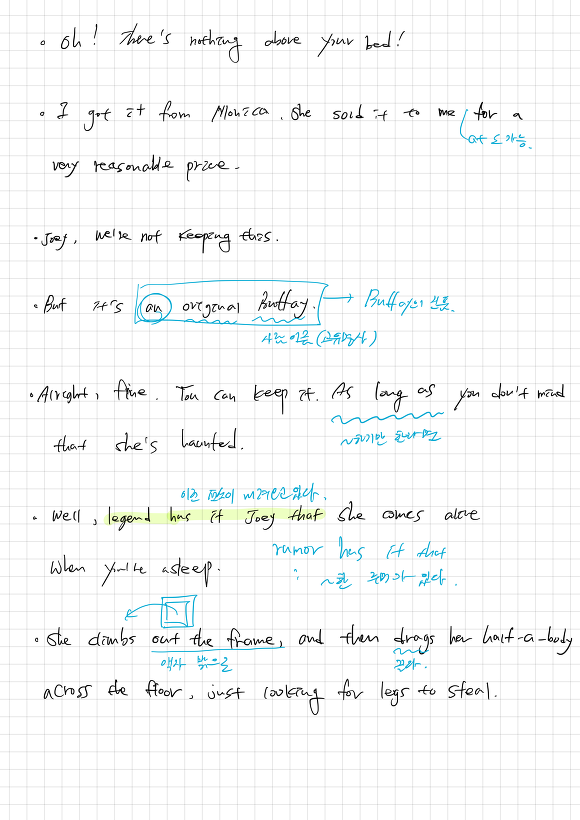 • Oh! There's nothing above your bed!
• I got it from Monica. She sold it to me for a
at도 가능.
very reasonable price.
• Joey, we're not keeping this.
• But it's an original Buffay. → Buffay의 진품.
사람 이름 (고유명사)
• Alright, fine. You can keep it. As long as you don't mind
~하기만 한다면
that she's haunted.
이런 전설이 내려오고있다.
• Well, legend has it Joey that she comes alive
rumor has it that
when you're asleep.
: ~한 루머가 있다.
• She climbs out the frame, and then drags her half-a-body
액자 밖으로
끌다.
across the floor, just looking for legs to steal.